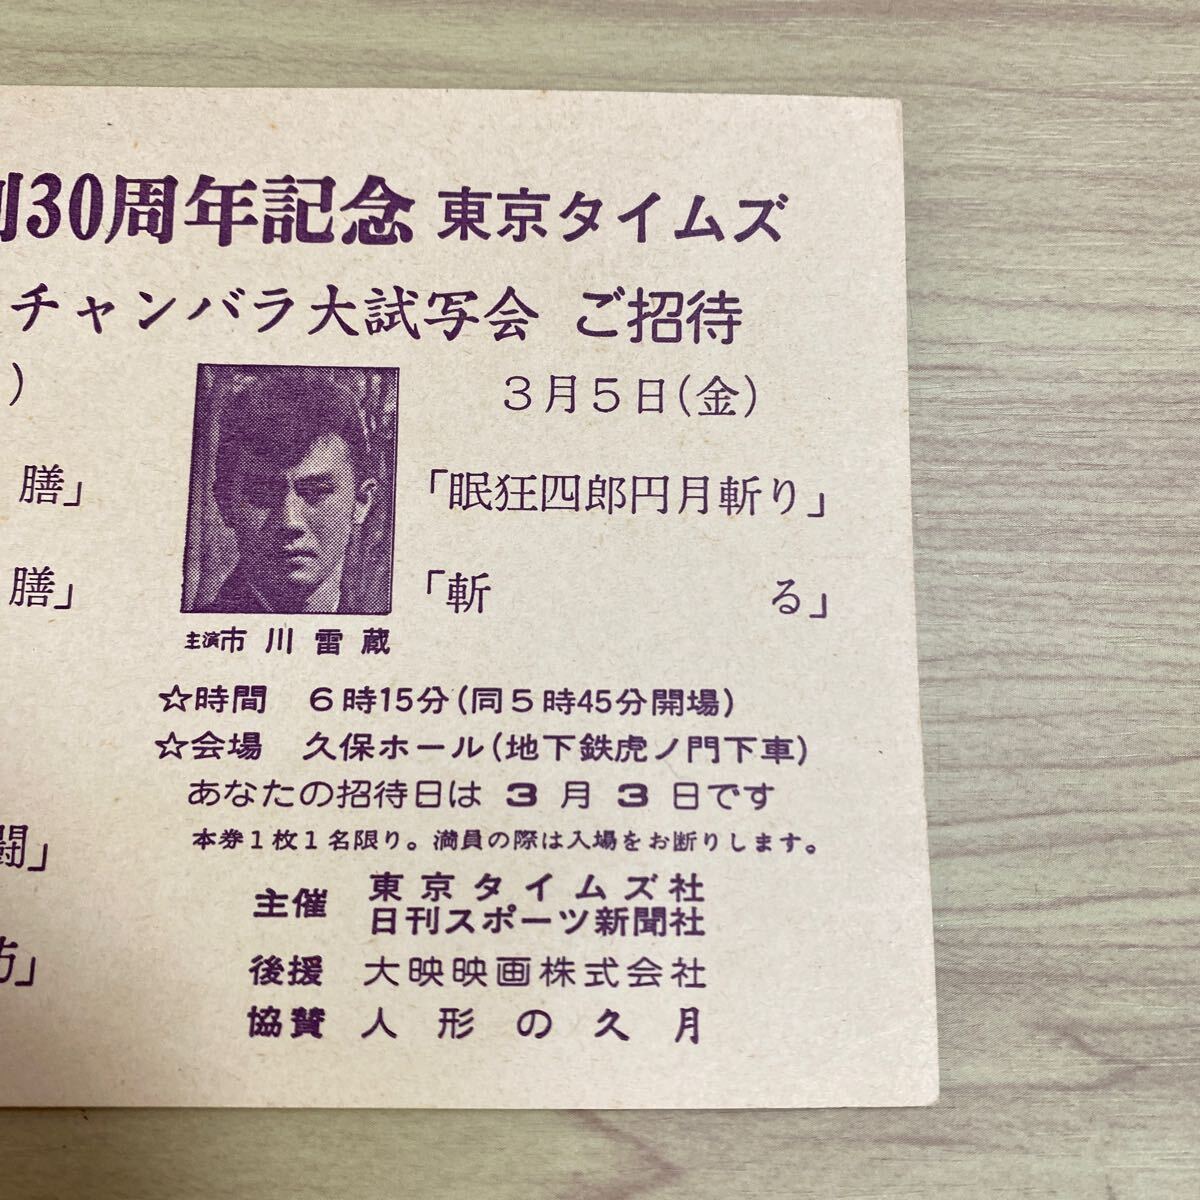 30周年記念 東京タイムズ
チャンバラ大試写会 ご招待
)
3月5日(金)
膳」
「眠狂四郎円月斬り」
膳」
「斬る」
主演市川雷蔵
☆時間 6時15分(同5時45分開場)
☆会場 久保ホール(地下鉄虎ノ門下車)
あなたの招待日は 3 月 3 日です
本券1枚1名限り。満員の際は入場をお断りします。
闘」
主催 東京タイムズ社
日刊スポーツ新聞社
後援 大映映画株式会社
」
協賛 人形の久月